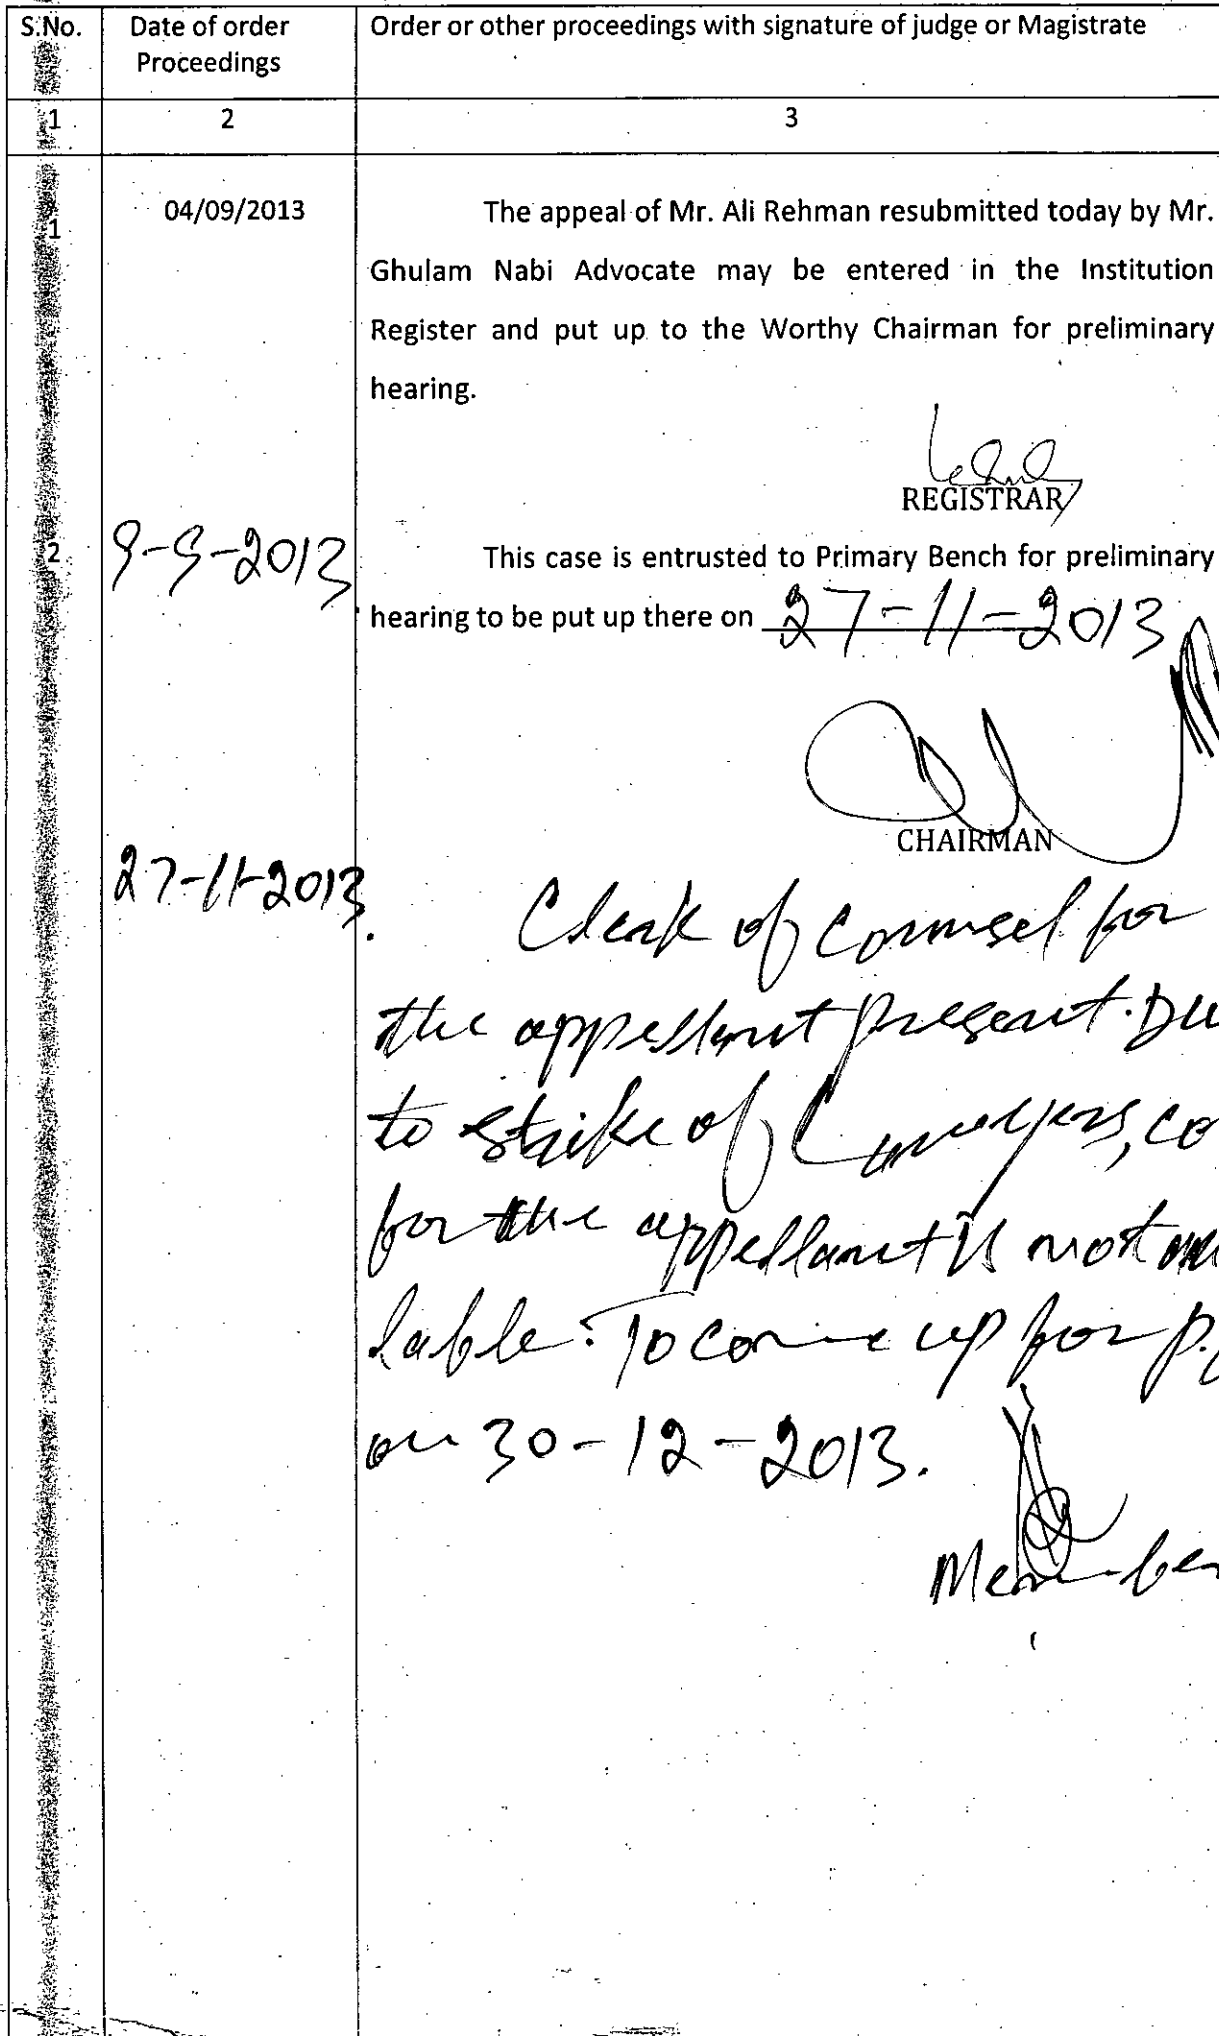 S.No.
Date of order
Proceedings
Order or other proceedings with signature of judge or Magistrate
1
2
3
1
04/09/2013
The appeal of Mr. Ali Rehman resubmitted today by Mr.
Ghulam Nabi Advocate may be entered in the Institution
Register and put up to the Worthy Chairman for preliminary
hearing.
REGISTRAR
2
9-9-2013
This case is entrusted to Primary Bench for preliminary
hearing to be put up there on 27-11-2013
CHAIRMAN
27-11-2013.
Clerk of counsel for
the appellant present. Du
to strike of Lawyers, co
for the appellant is not
lable. To come up for p.
on 30-12-2013.
Member